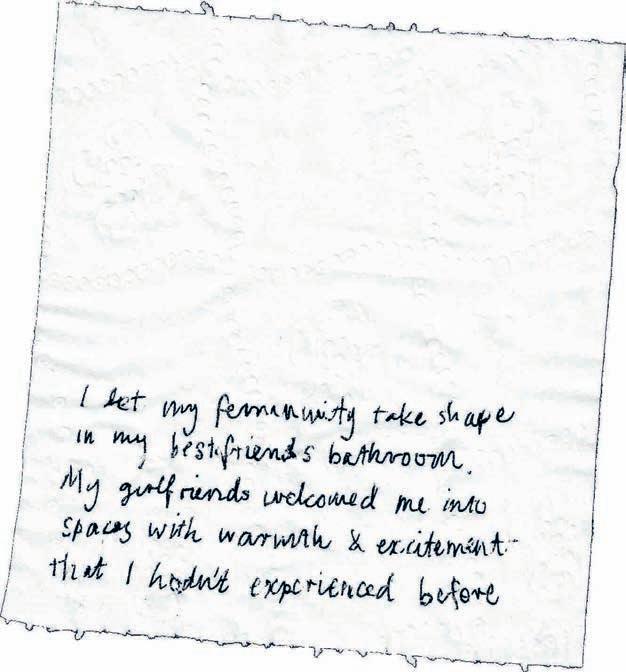 I let my femininity take shape
in my bestfriends bathroom.
My girlfriends welcomed me into
spaces with warmth & excitement
that I hadn't experienced before